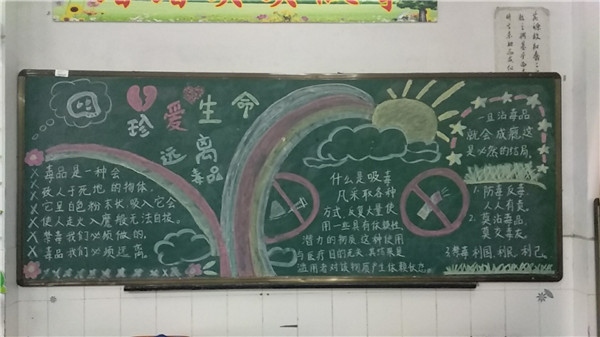 珍爱生命
远离毒品
毒品是一种会
致人于死地的物体。
它呈白色粉末状,吸入它会
使人走火入魔般无法自拔。
禁毒我们必须做的,
毒品我们必须远离。
什么是吸毒
凡采取各种
方式反复大量使
用一些具有依赖性
潜力的物质,这种使用
与医疗目的无关,其结果是
滥用者对该物质产生依赖状态
一旦沾毒品
就会成瘾,这
是必然的结局。
1. 防毒反毒
人人有责
2. 莫沾毒品
莫交毒友
3. 禁毒利国、利民、利己。